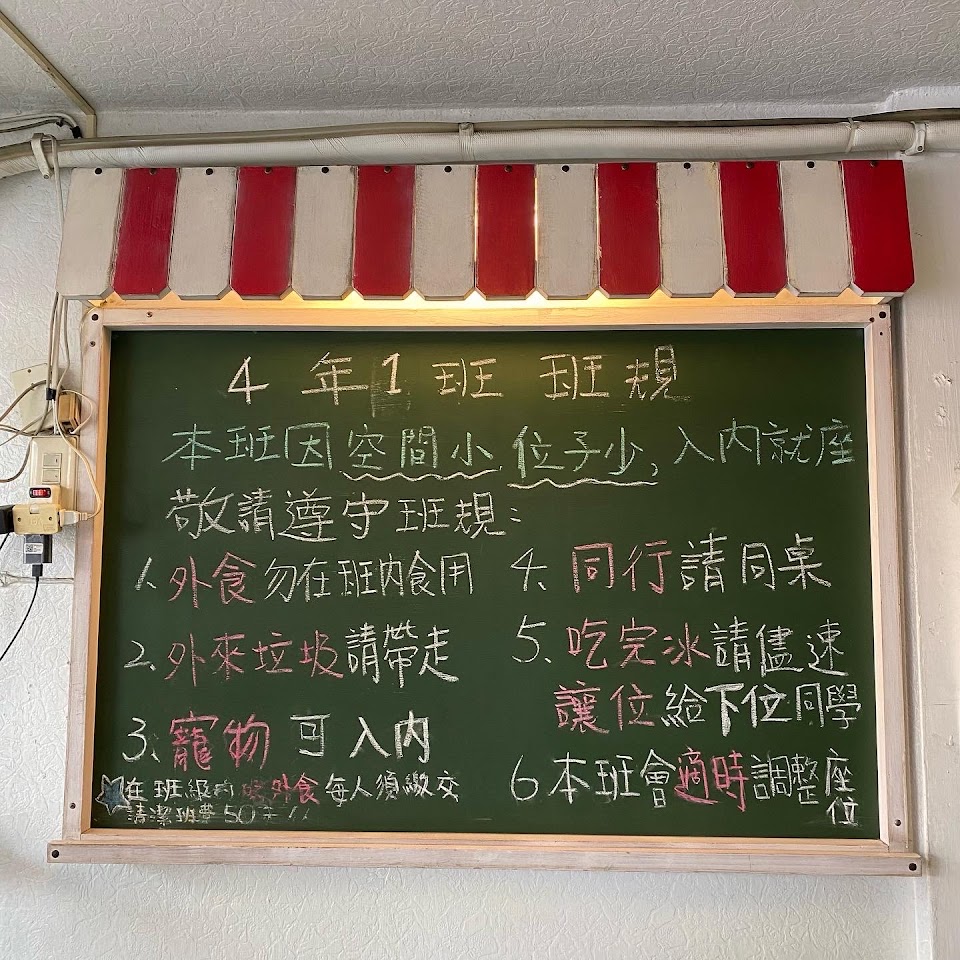 4年1班 班規
本班因空間小,位子少,入內就座
敬請遵守班規:
1.外食勿在班內食用
2.外來垃圾請帶走
3.寵物可入內
在班級內吃外食每人須繳交
清潔班費50元!!
4.同行請同桌
5.吃完冰請儘速
讓位給下位同學
6本班會適時調整座位